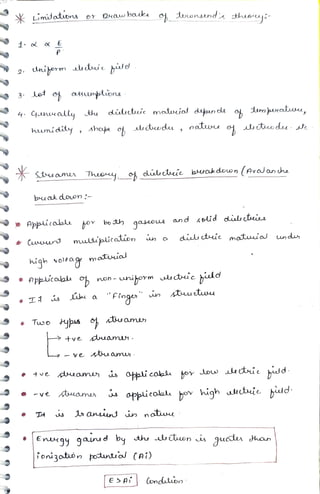 * Limitations or Drawbacks of townsend's theory:-
1. α ∝ E/P
2. Uniform electric field.
3. Lot of assumptions
4. Generally the dielectric material depends of temperature,
humidity, shape of electrodes, nature of electrodes etc
* Streamer Theory of dielectric breakdown (Avalanche
breakdown:-
• Applicable for both gaseous and solid dielectrics
• Current multiplication in a dielectric material under
high voltage material
• Applicable of non-uniform electric field
• It is like a "Finger" in structure
• Two types of streamer
→ +ve streamer.
→ -ve streamer
• +ve streamer is applicable for low electric field.
• -ve streamer is applicable for high electric field.
• It is transient in nature.
• Energy gained by the electron is greater than
ionization potential (Ai)
E > Ai Condition